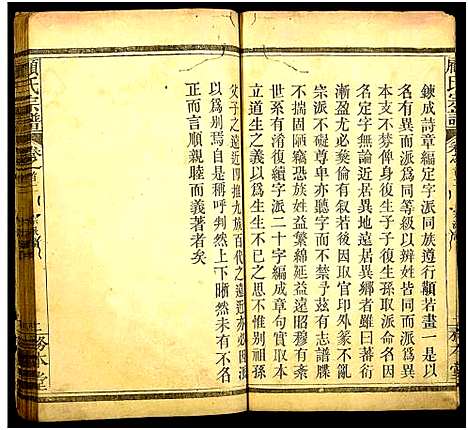 顧氏宗譜
錬成詩章編定字派同族遵行顯若畫一是以
名有異而派爲同等級以辨姓皆同而派爲異
本支不棼俾身復生子子復生孫取派命名因
名命字無論近居異地遠居異鄉者雖曰蕃衍
漸盈尤必奠倫有敘因取官印外篆不亂
宗派不礙尊卑亦聽字而不禁予兹有志譜牒
世系罔陋竊恐族姓益繁綿延益遠昭穆易失
前人有淆復續字派二十字編成章句實取本
立道生之義以爲生生不已之思不惟別祖孫
父子之遠近四推九族百代之遠近亦必因派
以爲別焉自是稱呼判然上下暁然未有不名
正而言順親睦而義著者矣
顧氏宗譜
卷之首二
三 務本堂